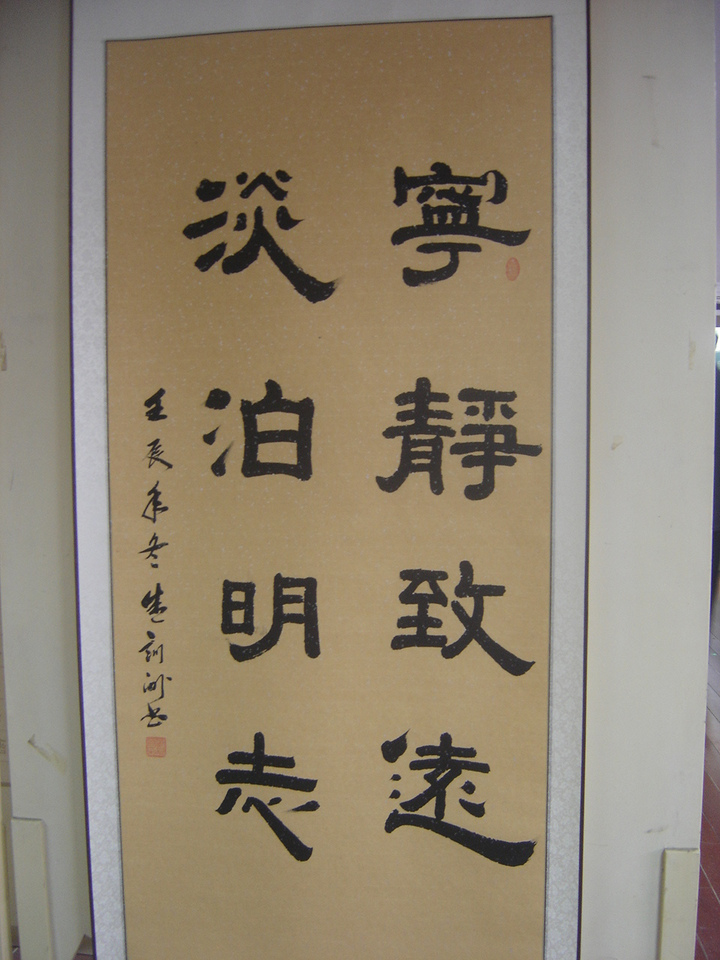 寧靜致遠
淡泊明志
壬辰年冬
書